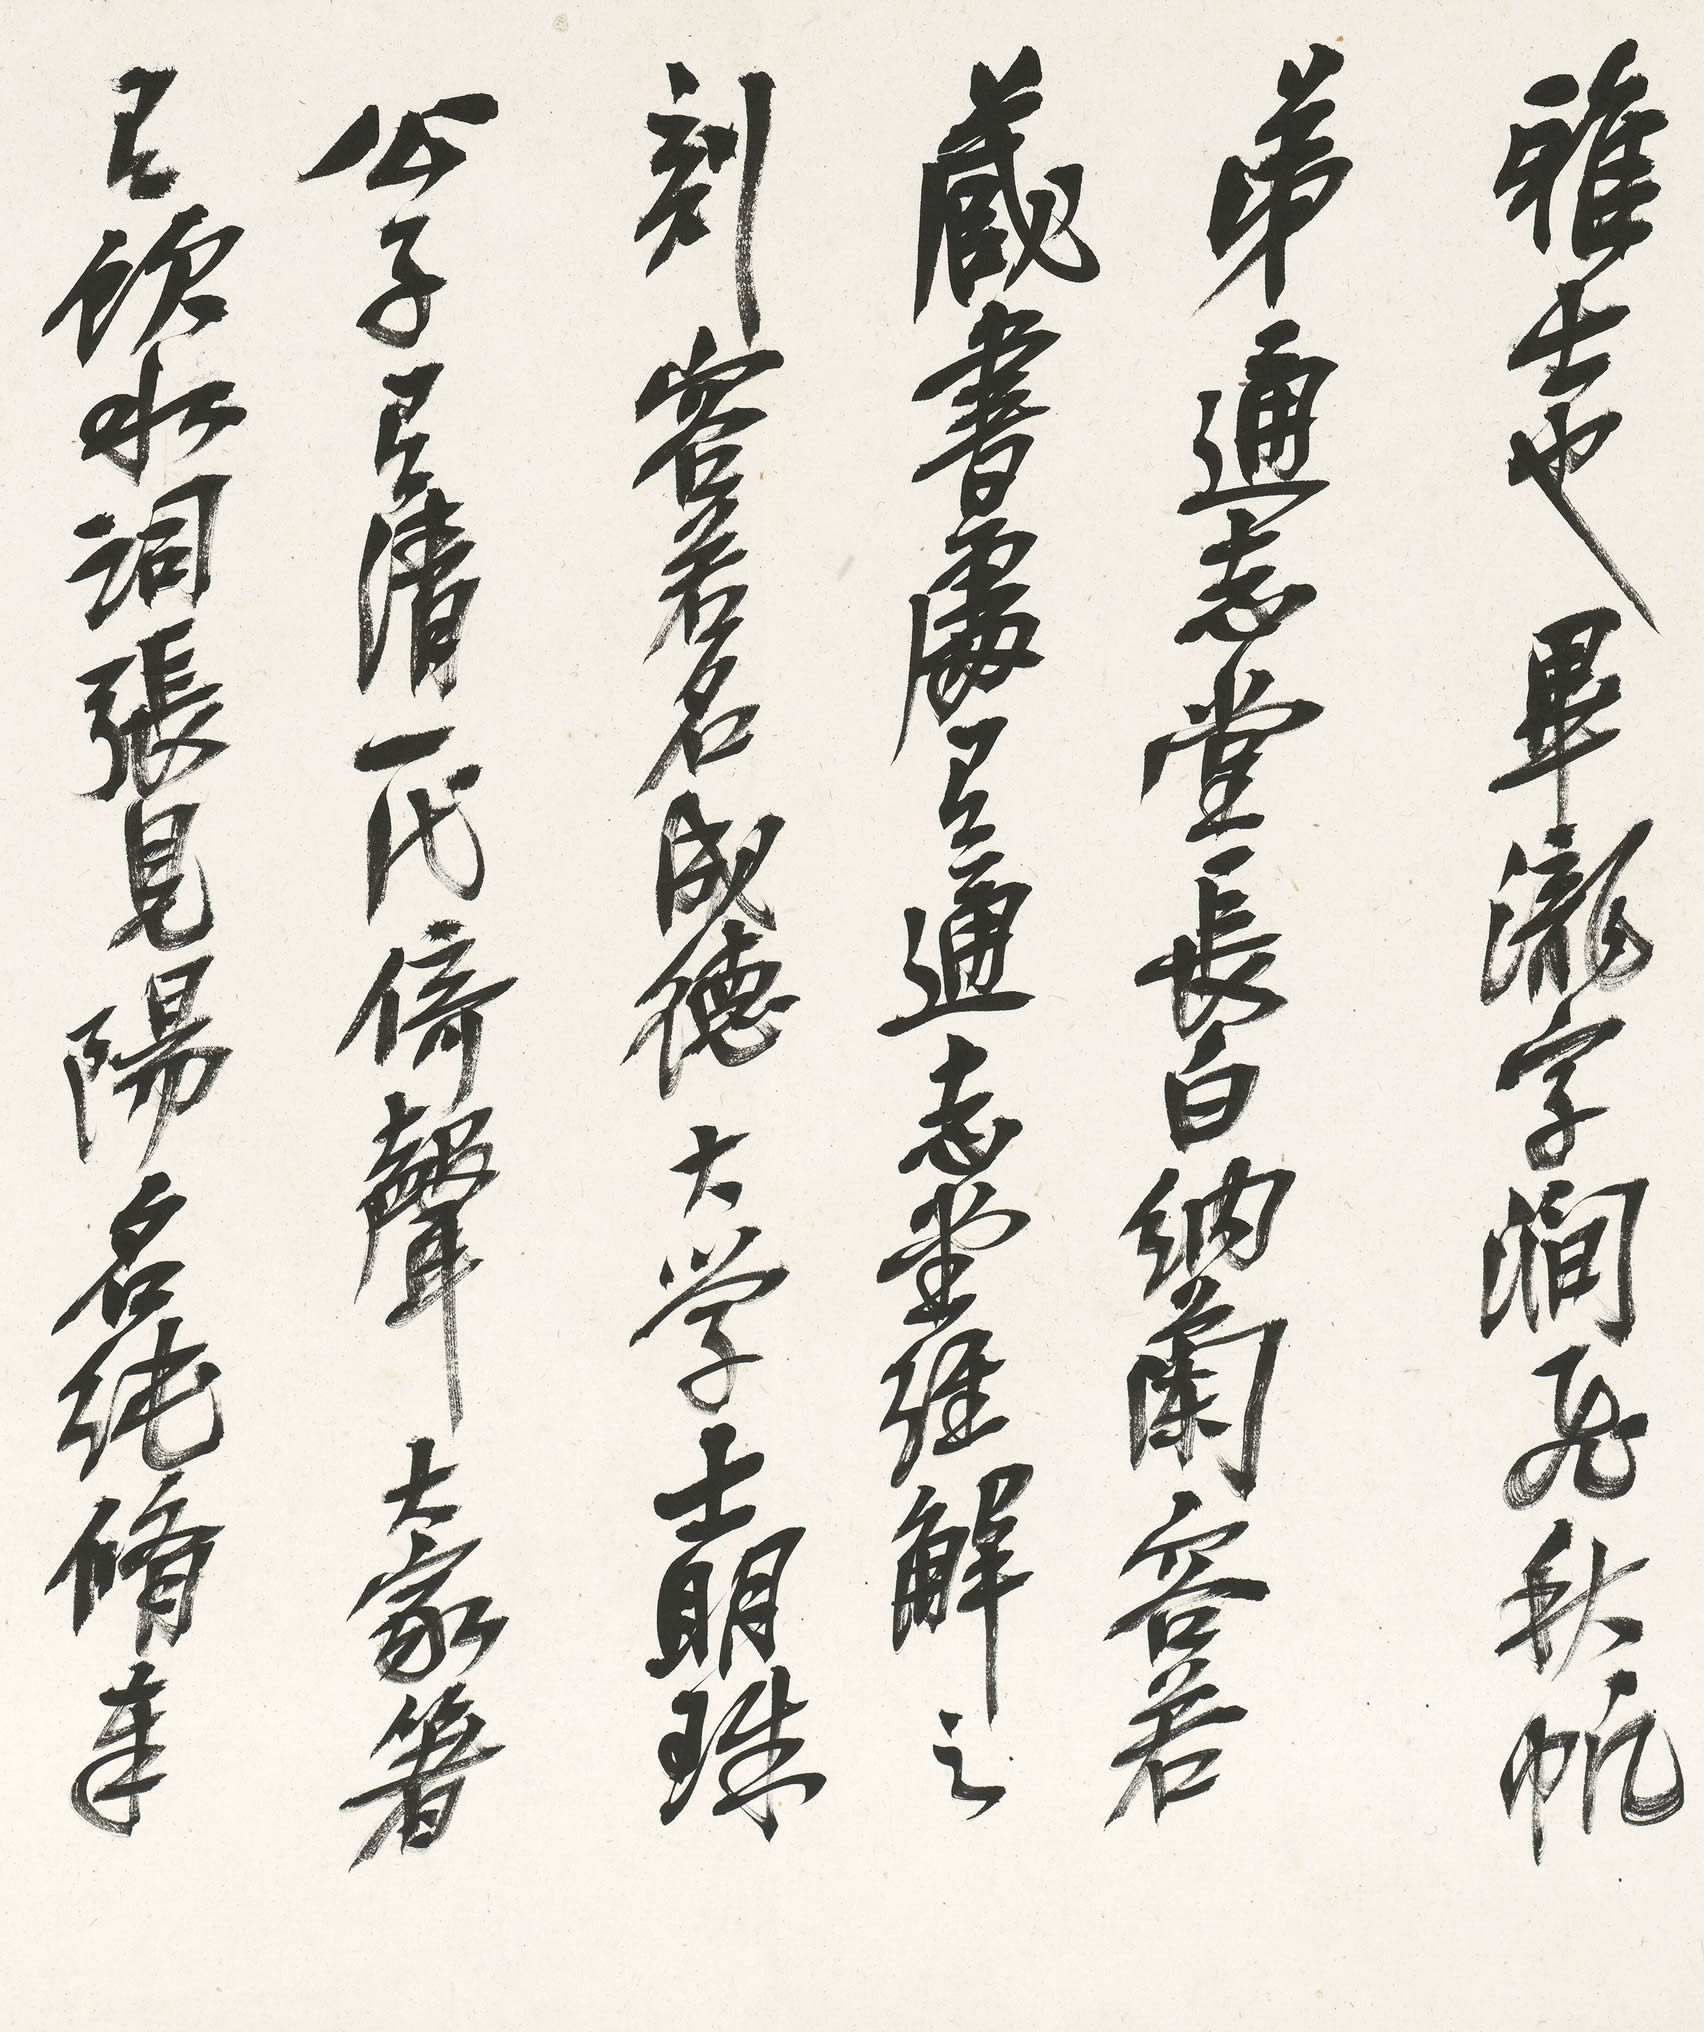 雅士也畢瀧字澗飛秋帆
弟通志堂長白納蘭容若
藏書處有通志堂經解之
刻容若名成德大学士明珠
公子有清一代倚聲大家著
有飲水詞張見陽名純脩奉